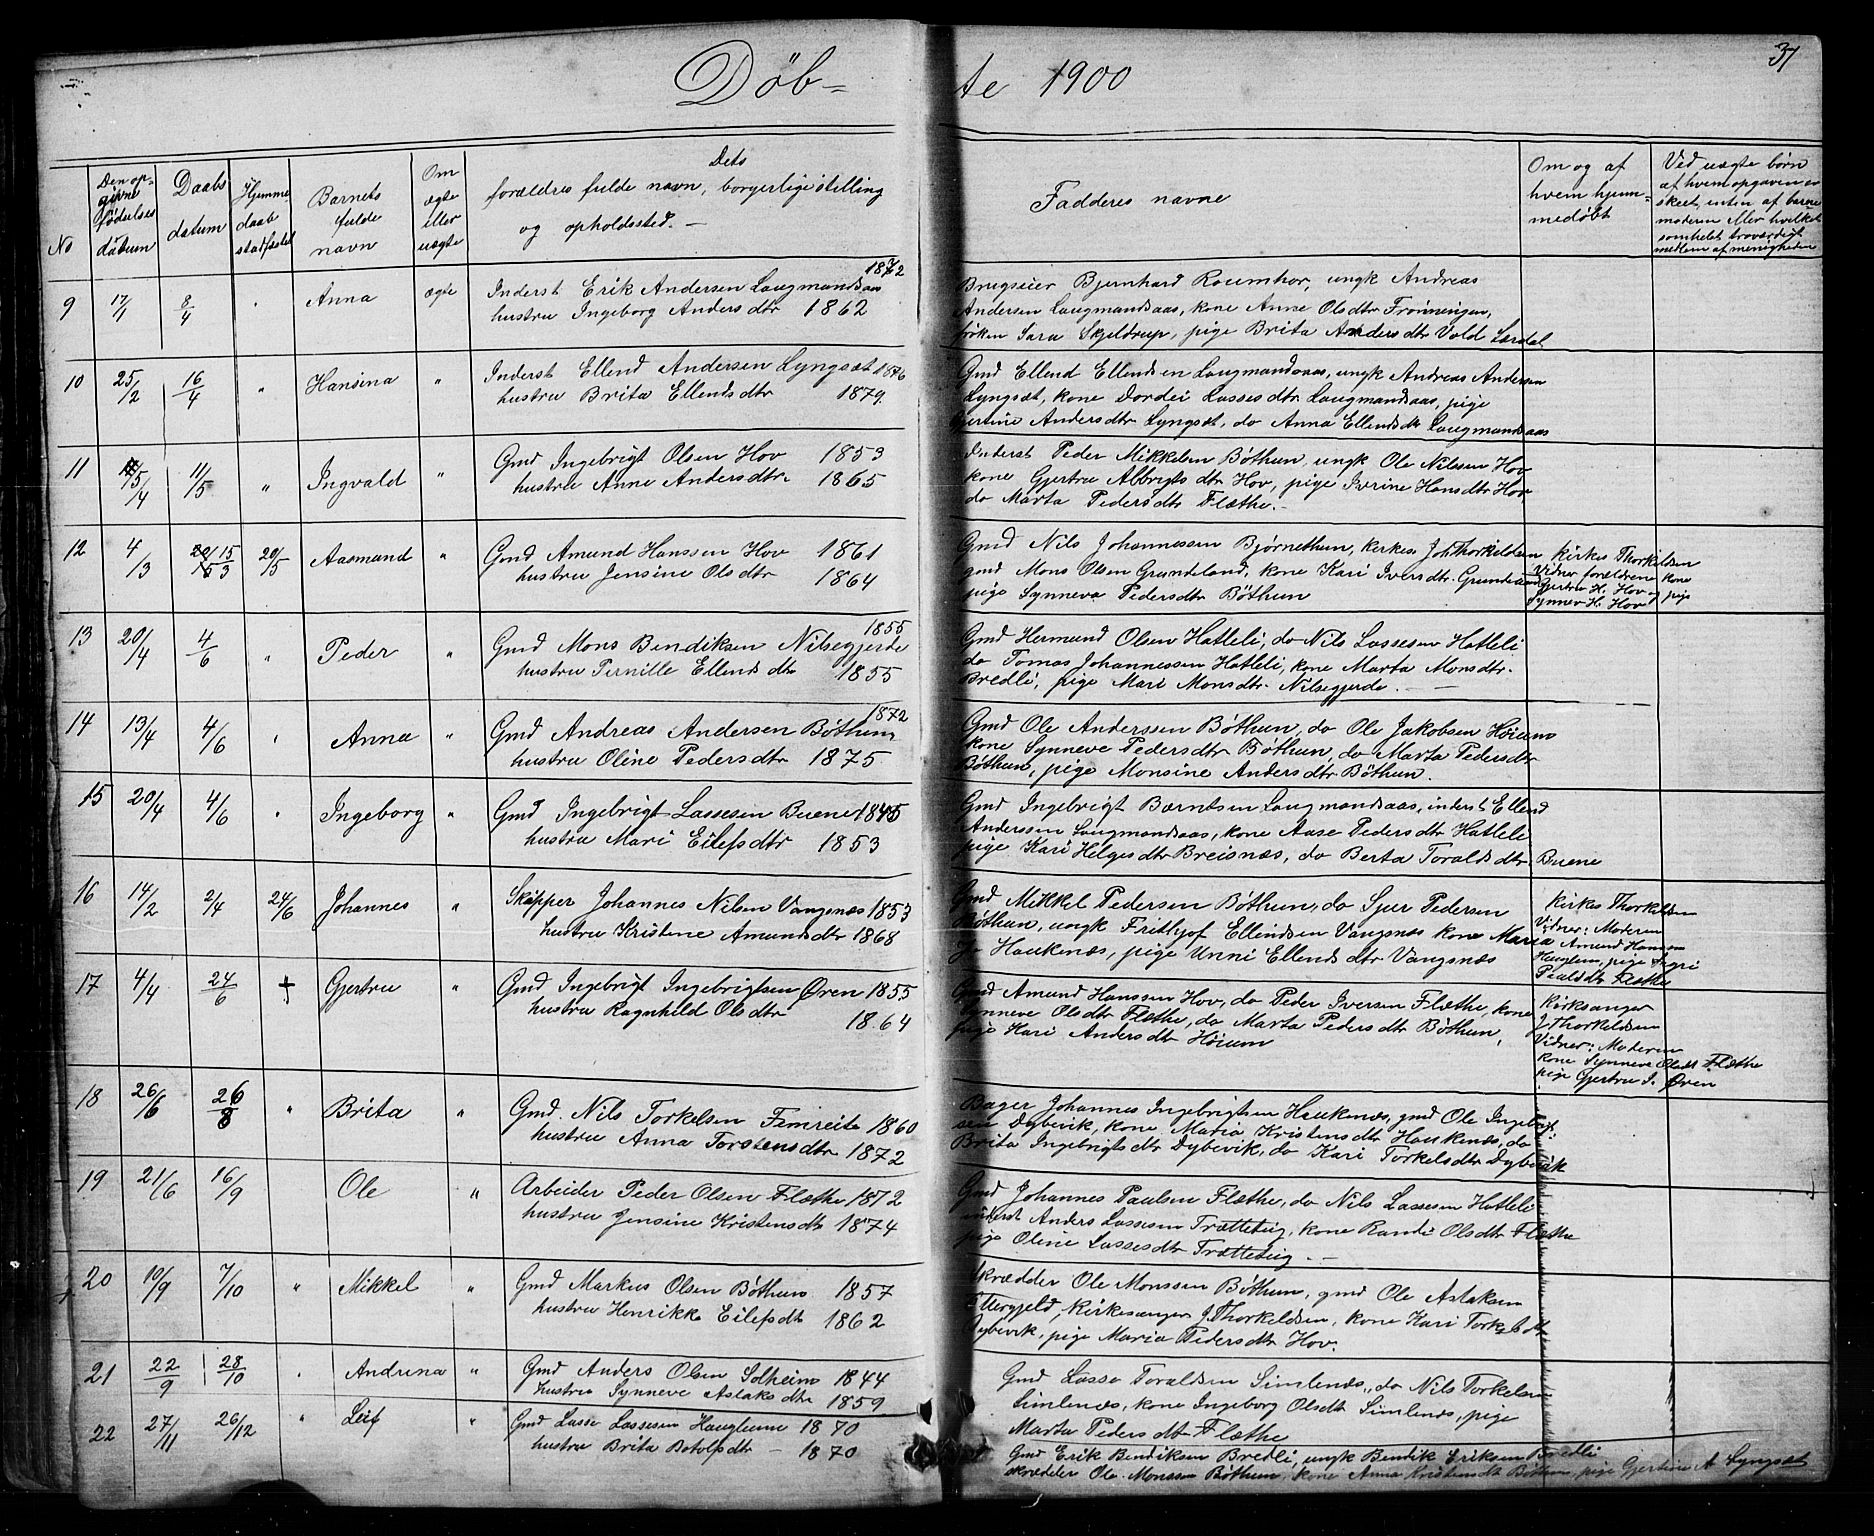 31
Døb-te 1900
No
Den opgivne fødselsdatum
Daabsdatum
Hjemmedaab stadfæstet
Barnets fulde navn
Om ægte eller uægte
Dets forældres fulde navn, borgerlige stilling og opholdssted. —
Faddernes navne
Om og af hvem hjemmedøbt
Ved uægte børn af hvem opgaven er skeet, enten af barnemoderen eller hvilket somhelst troværdigt medlem af menigheden
9 17/1 8/4 " Anna ægte
Inderst Erik Andersen Laugmandsaas 1872
hustru Ingeborg Andersdtr 1862
Bjernhard, ungk Andreas
Andersen Laugmandsaas, kone Anne Olsdtr Frønningen,
frøken Sara Skjeldrup, pige Brita Andersdtr Vold Lærdal
10 25/2 16/4 " Hansina "
Inderst Ellend Andersen Lyngsæt 1876
hustru Brita Ellendsdtr 1879.
Gmd Ellend Ellendsen Laugmandsaas, ungk Andreas Andersen
Lyngsæt, kone Dordei Lassesdtr Laugmandsaas, pige
Gjertine Andersdtr Lyngsæt, do Anna Ellendsdtr Laugmandsaas
11 5/4 11/5 " Ingvald "
Gmd Ingebrigt Olsen Hov 1853
hustru Anne Andersdtr 1865
Inderst Peder Mikkelsen Bøthun, ungk Ole Nilssen Hov
kone Gjertru Albrigtsdtr Hov, pige Iverine Hansdtr Hov
do Marta Pedersdtr Flæthe. —
12 4/3 15/3 20/5 Aasmund "
Gmd Amund Hanssen Hov 1861
hustru Jensine Olsdtr 1864
Gmd Nils Johannessen Bjørnethun, kirkes Joh Thorkildsen
gmd Mons Olsen Grundeland, kone Kari Iversdtr. Grundeland
pige Synneva Pedersdtr Bøthun
kirkes Thorkildsen
Vidner forældren kone
Gjertru H. Hov og pige
Synnev H. Hov
13 20/4 4/6 " Peder "
Gmd Mons Bendiksen Nilsegjerde 1855
hustru Pernille Ellendsdtr 1855
Gmd Hermund Olsen Hatleli, do Nils Lassesen Hatleli
do Tomas Johannessen Hatleli, kone Marta Monsdtr.
Bredli, pige Mari Monsdtr. Nilsegjerde. —
14 13/4 4/6 " Anna "
Gmd Andreas Andersen Bøthun 1872
hustru Oline Pedersdtr 1875.
Gmd Ole Anderssen Bøthun, do Ole Jakobsen Høium
kone Synneve Pedersdtr Bøthun, do Marta Pedersdtr
Bøthun, pige Monsine Andersdtr Bøthun.
15 20/4 4/6 " Ingeborg "
Gmd Ingebrigt Lassesen Buene 1845
hustru Mari Eilefsdtr 1853
Gmd Ingebrigt Berntsen Laugmandsaas, inderst Ellend
Anderssen Laugmandsaas, kone Aase Pedersdtr Hatleli
pige Kari Helgesdtr Breisnæs, do Berta Toraldsdtr Buene
16 14/2 2/4 24/6 Johannes "
Skipper Johannes Nilsen Vangsnæs 1853
hustru Kristine Amundsdtr 1868
Gmd Mikkel Pedersen Bøthun, do Sjur Pedersen
Bøthun, ungk Frithjof Ellendsen Vangsnæs kone Maria
Haukenæs, pige Unni Ellendsdtr Vangsnæs
kirkes Thorkildsen
Vidner: Moderen
Amund Hansen
Hauglum, pige Ingri
Flæthe
17 4/4 24/6 + Gjertru "
Gmd Ingebrigt Ingebrigtsen Øren 1855
hustru Ragnhild Olsdtr 1864
Gmd Amund Hanssen Hov, do Peder Iversen Flæthe, kone
Synneve Olsdtr Flæthe, do Marta Pedersdtr Bøthun,
pige Kari Andersdtr Høium
Kirkesanger
J Thorkeldsen
Vidner: Moderen
kone Synneve Olsdt Flæthe
pige Gjertru I. Øren
18 26/6 26/8 " Brita "
Gmd. Nils Torkelsen Fimreite 1860
hustru Anna Torstensdtr 1872
Bager Johannes Ingebrigtsen Haukenæs, gmd Ole Ingebrigt-
sen Dybevik, kone Maria Kristensdtr Haukenæs, do
Brita Ingebrigtsdtr Dybevik, do Kari Torkelsdtr Dybevik
19 21/6 16/9 Ole "
Arbeider Peder Olsen Flæthe 1872
hustru Jensine Kristensdt 1874
Gmd Johannes Paulsen Flæthe, do Nils Lassesen Hatleli
inderst Anders Lassesen Trætteteig, kone Randi Olsdtr Flæthe
pige Oline Lassesdtr Trætteteig. —
20 10/9 7/10 " Mikkel "
Gmd Markus Olsen Bøthun 1857
hustru Henrikke Eilefsdt 1862
skrædder Ole Monssen Bøthun, gmd Ole Aslaksen
Ettergjeld, kirkesanger J. Thorkeldsen, kone Kari Torkelsdt
Dybevik, pige Maria Pedersdtr Hov.
21 22/9 28/10 " Andrina "
Gmd Anders Olsen Solheim 1844
hustru Synneve Aslaksdtr 1859
Gmd Lasse Toraldsen Simlenæs, do Nils Torkelsen
Simlenæs, kone Ingeborg Olsdtr Simlenæs, pige
Marta Pedersdtr Flæthe
22 27/11 26/12 " Leif "
Gmd Lasse Lassesen Hauglum 1870
hustru Brita Botolfsdtr — 1870
Gmd Erik Bendiksen Bredli, ungk Bendik Eriksen Bredli
skrædder Ole Monssen Bøthun, kone Anna Kristensdt Bøthun, pige Gjertine A Lyngsæt